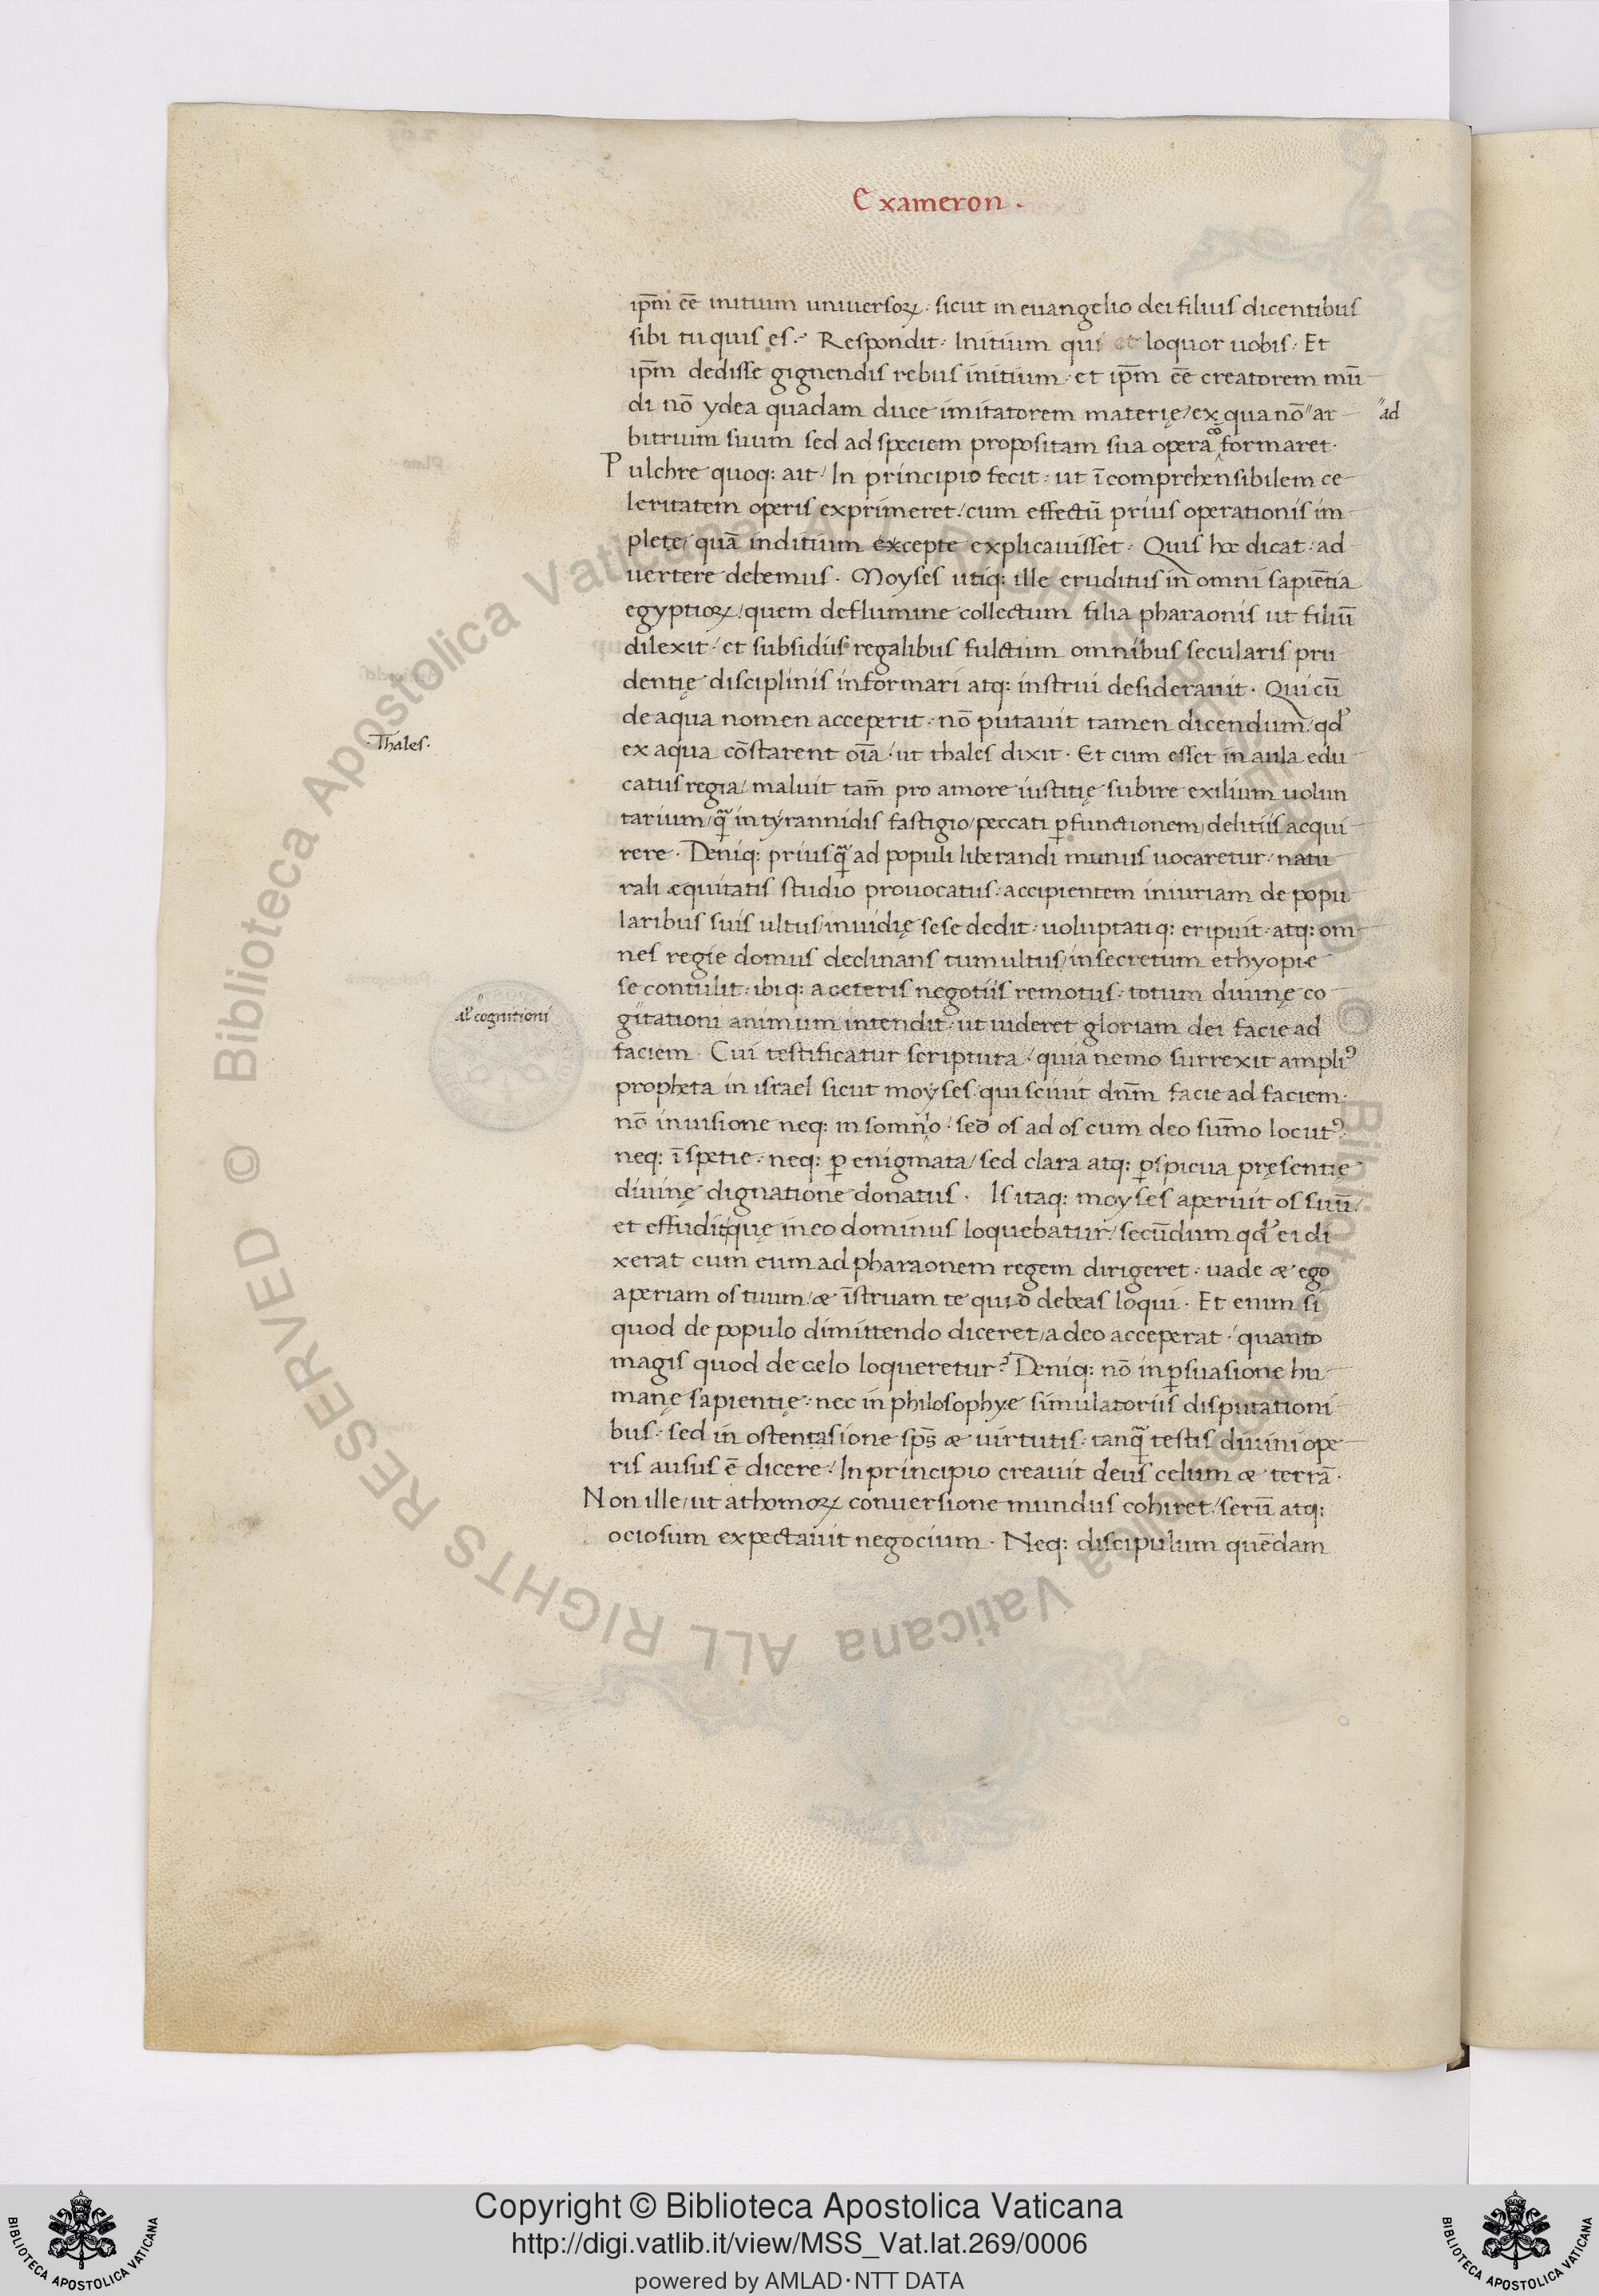 Exameron .
ip̄m eē initium universoꝝ · sicut in euangelio dei filius dicentibus
sibi tu quis es · Respondit · Initium qui et loquor uobis · Et
ip̄m dedisse gignendis rebus initium · et ip̄m eē creatorem mū
di nō ydea quadam duce imitatorem materię / ex qua nō " ar
" ad
bitrium suum sed ad speciem propositam sua opera formaret ·
Pulchre quoq: ait / In principio fecit · ut īcomprehensibilem ce
leritatem operis exprimeret / cum effectū prius operationis im
plete / quā inditium excepte explicavisset · Quis hoc dicat · ad
uertere debemus · Moyses utiq: ille eruditus in omni sapiētia
egyptioꝝ / quem de flumine collectum filia pharaonis ut filiū
dilexit / et subsidiis regalibus fulctum omnibus secularis pru
dentię disciplinis informari atq: instrui desideravit · Qui cū
de aqua nomen acceperit · nō putavit tamen dicendum / qd'
· Thales ·
ex aqua cōstarent oīa / ut thales dixit · Et cum esset in aula edu
catus regia / maluit tam̄ pro amore iustitię subire exilium uolun
tarium / q̄ in tyrannidis fastigio / peccati ꝑfunctionem / delitiis acqui
rere · Deniq: priusq̄ ad populi liberandi munus uocaretur · natu
rali æquitatis studio prouocatus · accipientem iniuriam de popu
laribus suis ultus / inuidię sese dedit · uoluptatiq: eripuit · atq: om
nes regie domus declinans tumultus / in secretum ethyopie
se contulit · ibiq: a ceteris negotiis remotus · totum diuinę co
al' cognitioni
gitationi animum intendit · ut uideret gloriam dei facie ad
faciem · Cui testificatur scriptura / quia nemo surrexit ampliꝰ
propheta in israel sicut moyses · qui scivit dn̄m facie ad faciem ·
nō in uisione neq: in somno / sed os ad os cum deo sum̄o locutꝰ ·
neq: ī spetie · neq: ꝑ enigmata / sed clara atq: ꝑspicua pręsentię
diuinę dignatione donatus · Is itaq: moyses aperuit os suū /
et effudit quę in eo dominus loquebatur / secūdum qd' ei di
xerat cum eum ad pharaonem regem dirigeret · uade æ ego
aperiam os tuum / æ īstruam te quid debeas loqui · Et enim si
quod de populo dimittendo diceret / a deo acceperat · quanto
magis quod de celo loqueretur? Deniq: nō in ꝑsuasione hu
manę sapientię · nec in philosophye simulatoriis disputationi
bus · sed in ostentasione sp̄s æ uirtutis · tanq̄ testis diuini ope
ris ausus ē dicere / In principio creauit deus celum æ terrā ·
Non ille / ut athomoꝝ conuersione mundus cohiret / serū atq:
ociosum expectauit negocium · Neq: discipulum quēdam
© Biblioteca Apostolica Vaticana ALL RIGHTS RESERVED
© Biblioteca Apostolica Vaticana ALL RIGHTS RESERVED
BIBLIOTECA APOSTOLICA VATICANA
Copyright © Biblioteca Apostolica Vaticana
http://digi.vatlib.it/view/MSS_Vat.lat.269/0006
powered by AMLAD·NTT DATA
BIBLIOTECA APOSTOLICA VATICANA